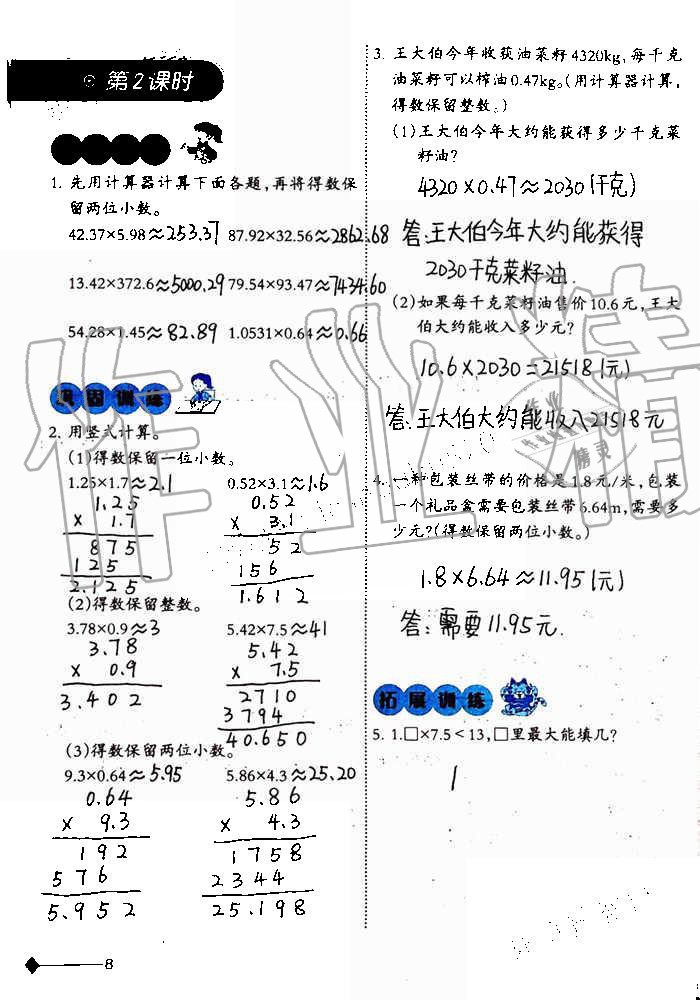 第2课时
1. 先用计算器计算下面各题,再将得数保
留两位小数。
42.37×5.98≈253.37 87.92×32.56≈2862.68
13.42×372.6≈5000.29 79.54×93.47≈7434.60
54.28×1.45≈82.89 1.0531×0.64≈0.66
巩固训练
2. 用竖式计算。
(1)得数保留一位小数。
1.25×1.7≈2.1 0.52×3.1≈1.6
1.25 0.52
× 1.7 × 3.1
875 52
125 156
2.125 1.612
(2)得数保留整数。
3.78×0.9≈3 5.42×7.5≈41
3.78 5.42
× 0.9 × 7.5
3.402 2710
3794
40.650
(3)得数保留两位小数。
9.3×0.64≈5.95 5.86×4.3≈25.20
0.64 5.86
× 9.3 × 4.3
192 1758
576 2344
5.952 25.198
8
3. 王大伯今年收获油菜籽4320kg,每千克
油菜籽可以榨油0.47kg。(用计算器计算,
得数保留整数。)
(1)王大伯今年大约能获得多少千克菜
籽油?
4320×0.47≈2030(千克)
答:王大伯今年大约能获得
2030千克菜籽油.
(2)如果每千克菜籽油售价10.6元,王大
伯大约能收入多少元?
10.6×2030=21518(元)
答:王大伯大约能收入21518元
4. 一种包装丝带的价格是1.8元/米,包装
一个礼品盒需要包装丝带6.64m,需要多
少元?(得数保留两位小数。)
1.8×6.64≈11.95(元)
答:需要11.95元.
拓展训练
5. 1.□×7.5<13,□里最大能填几?
1
作业精灵